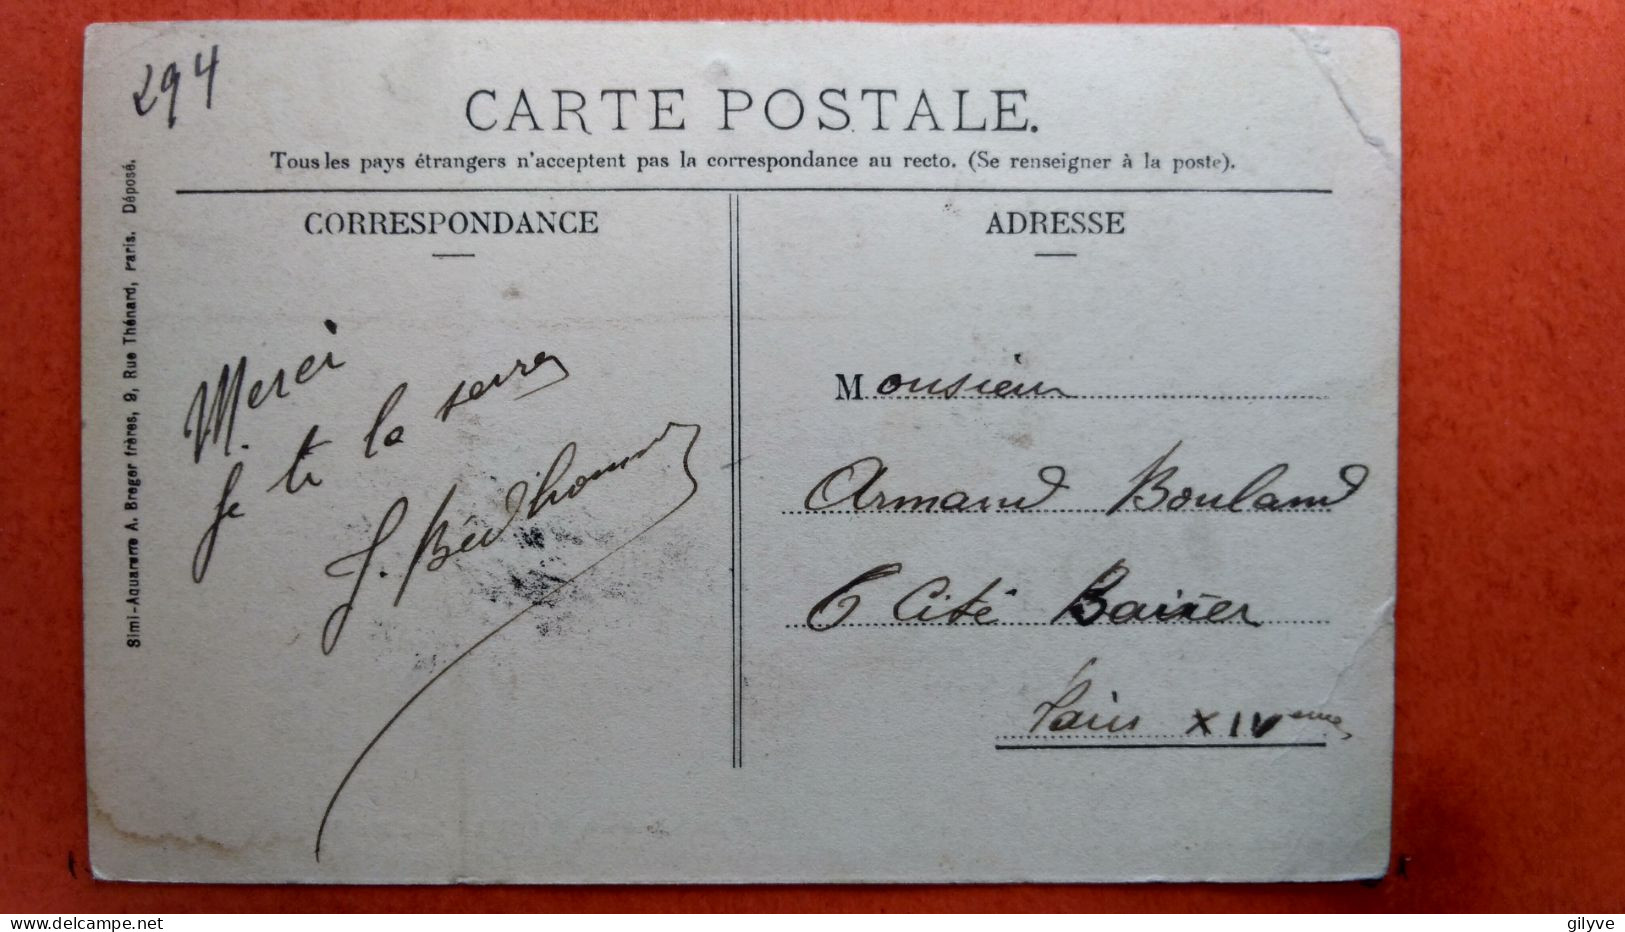 294
CARTE POSTALE.
Tous les pays étrangers n'acceptent pas la correspondance au recto. (Se renseigner à la poste).
Simi-Aquarerre A. Breger frères, 9, Rue Thénard, Paris. Déposé.
CORRESPONDANCE
Merci
Je te la serre
J.
ADRESSE
Monsieur
Armand Bouland
6 Cité
Paris XIVeme
gilyve